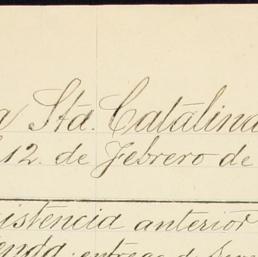 a Sta. Catalina
12 de Febrero de
istencia anterior
enda, entrega de